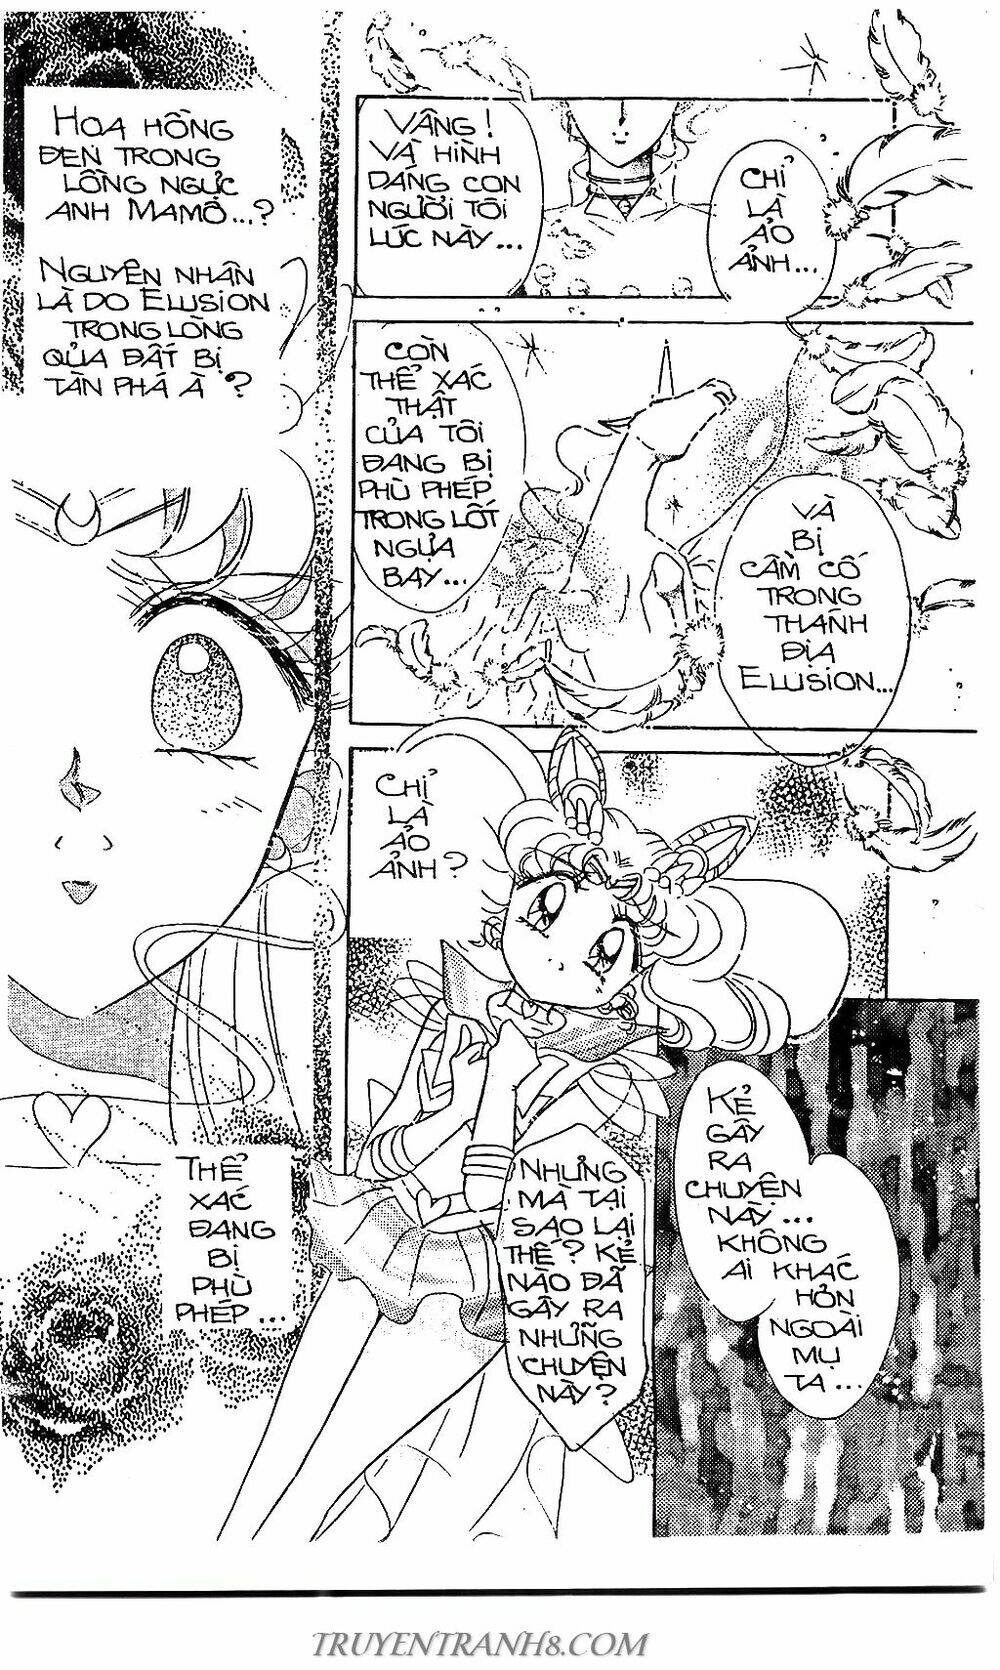 HOA HỒNG
ĐEN TRONG
LỒNG NGỰC
ANH MAMO...?
NGUYÊN NHÂN
LÀ DO ELUSION
TRONG LÒNG
QỦA ĐẤT BỊ
TÀN PHÁ À ?
VÂNG !
VÀ HÌNH
DẠNG CON
NGƯỜI TÔI
LÚC NÀY...
CHỈ
LÀ
ẢO
ẢNH...
CÒN
THỂ XÁC
THẬT
CỦA TÔI
ĐANG BỊ
PHÙ PHÉP
TRONG LỐT
NGỰA
BAY...
VÀ
BỊ
CẦM CỐ
TRONG
THÁNH
ĐỊA
ELUSION...
CHỈ
LÀ
ẢO
ẢNH ?
THỂ
XÁC
ĐANG
BỊ
PHÙ
PHÉP ...
NHƯNG
MÀ TẠI
SAO LẠI
THẾ ? KẺ
NÀO ĐÃ
GÂY RA
NHỮNG
CHUYỆN
NÀY ?
KẺ
GÂY
RA
CHUYỆN
NÀY ...
KHÔNG
AI KHÁC
HỎN
NGOÀI
MỤ
TA ...
TRUYENTRANH8.COM